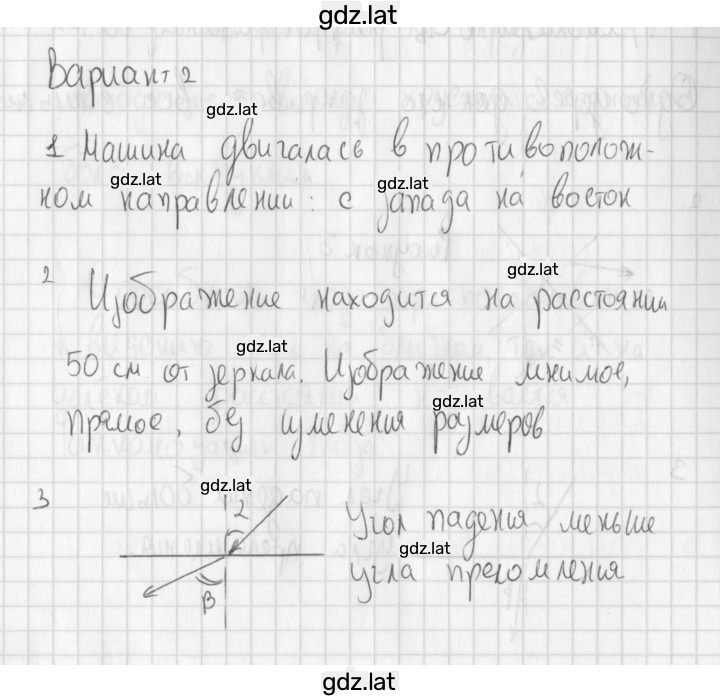 gdz.lat
Вариант 2
gdz.lat
1 Машина двигалась в противополож-
gdz.lat
gdz.lat
ном направлении: с запада на восток
gdz.lat
2 Изображение находится на расстоянии
gdz.lat
50 см от зеркала. Изображение мнимое,
gdz.lat
прямое, без изменения размеров
gdz.lat
3
2
Угол падения меньше
gdz.lat
угла преломления
β
gdz.lat